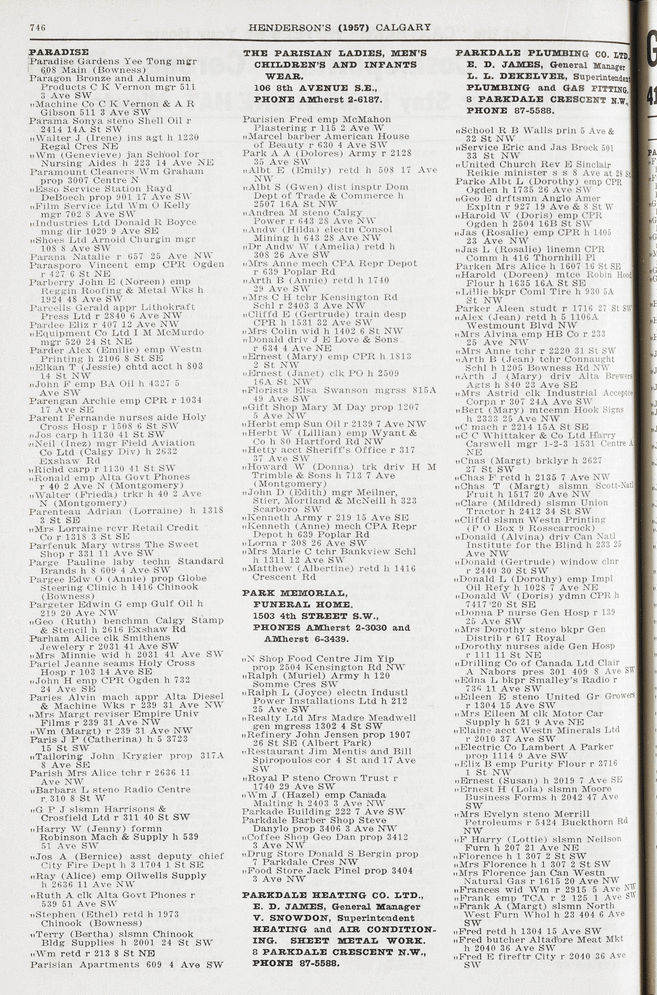 746
HENDERSON'S (1957) CALGARY
PARADISE
Paradise Gardens Yee Tong mgr
608 Main (Bowness)
Paragon Bronze and Aluminum
Products C K Vernon mgr 511
3 Ave SW
„Machine Co C K Vernon & A R
Gibson 511 3 Ave SW
Parama Sonya steno Shell Oil r
2414 14A St SW
„Walter J (Irene) ins agt h 1230
Regal Cres NE
„Wm (Genevieve) jan School for
Nursing Aides h 223 14 Ave NE
Paramount Cleaners Wm Graham
prop 3007 Centre N
„Esso Service Station Rayd
DeBoech prop 901 17 Ave SW
„Film Service Ltd Wm O Kelly
mgr 702 8 Ave SW
„Industries Ltd Donald R Boyce
mng dir 1029 9 Ave SE
„Shoes Ltd Arnold Churgin mgr
108 8 Ave SW
Parana Natalie r 657 25 Ave NW
Parasporo Vincent emp CPR Ogden
r 427 6 St NE
Parberry John E (Noreen) emp
Reggin Roofing & Metal Wks h
1924 48 Ave SW
Parcells Gerald appr Lithokraft
Press Ltd r 2840 6 Ave NW
Pardee Eliz r 407 12 Ave NW
„Equipment Co Ltd I M McMurdo
mgr 520 24 St NE
Parder Alex (Emilie) emp Westn
Printing h 2106 8 St SE
„Elkan T (Jessie) chtd acct h 803
14 St NW
„John F emp BA Oil h 4327 5
Ave SW
Parengan Archie emp CPR r 1034
17 Ave SE
Parent Fernande nurses aide Holy
Cross Hosp r 1508 6 St SW
„Jos carp h 1130 41 St SW
„Neil (Inez) mgr Field Aviation
Co Ltd (Calgy Div) h 2632
Exshaw Rd
„Richd carp r 1130 41 St SW
„Ronald emp Alta Govt Phones
r 40 2 Ave N (Montgomery)
„Walter (Frieda) trkr h 40 2 Ave
N (Montgomery)
Parenteau Adrian (Lorraine) h 1318
3 St SE
„Mrs Lorraine rcvr Retail Credit
Co r 1318 3 St SE
Parfenuk Mary wtrss The Sweet
Shop r 331 11 Ave SW
Parge Pauline laby techn Standard
Brands h 8 609 4 Ave SW
Pargee Edw O (Annie) prop Globe
Steering Clinic h 1416 Chinook
(Bowness)
Pargeter Edwin G emp Gulf Oil h
219 20 Ave NW
„Geo (Ruth) benchmn Calgy Stamp
& Stencil h 2616 Exshaw Rd
Parham Alice clk Smithens
Jewelery r 2031 41 Ave SW
„Mrs Minnie wid h 2031 41 Ave SW
Pariel Jeanne seams Holy Cross
Hosp r 103 14 Ave SE
„John H emp CPR Ogden h 732
24 Ave SE
Paries Alvin mach appr Alta Diesel
& Machine Wks r 239 31 Ave NW
„Mrs Margt reviser Empire Univ
Films r 239 31 Ave NW
„Wm (Margt) r 239 31 Ave NW
Paris J P (Catherina) h 5 3723
15 St SW
„Tailoring John Krygier prop 317A
8 Ave SE
Parish Mrs Alice tchr r 2636 11
Ave NW
„Barbara L steno Radio Centre
r 310 8 St W
„G P J slsmn Harrisons &
Crosfield Ltd r 311 40 St SW
„Harry W (Jenny) formn
Robinson Mach & Supply h 539
51 Ave SW
„Jos A (Bernice) asst deputy chief
City Fire Dept h 3 1704 1 St SE
„Ray (Alice) emp Oilwells Supply
h 2636 11 Ave NW
„Ruth A clk Alta Govt Phones r
539 51 Ave SW
„Stephen (Ethel) retd h 1973
Chinook (Bowness)
„Terry (Bertha) slsmn Chinook
Bldg Supplies h 2001 24 St SW
„Wm retd r 213 8 St NE
Parisian Apartments 609 4 Ave SW
THE PARISIAN LADIES, MEN'S
CHILDREN'S AND INFANTS
WEAR.
106 8th AVENUE S.E.,
PHONE AMherst 2-6187.
Parisien Fred emp McMahon
Plastering r 115 2 Ave W
„Marcel barber American House
of Beauty r 630 4 Ave SW
Park A A (Dolores) Army r 2128
35 Ave SW
„Albt E (Emily) retd h 508 17 Ave
NW
„Albt S (Gwen) dist insptr Dom
Dept of Trade & Commerce h
2507 16A St NW
„Andrea M steno Calgy
Power r 643 28 Ave NW
„Andw (Hilda) electn Consol
Mining h 643 28 Ave NW
„Dr Andw W (Amelia) retd h
308 26 Ave SW
„Mrs Anne mech CPA Repr Depot
r 639 Poplar Rd
„Arth B (Annie) retd h 1740
29 Ave SW
„Mrs C H tchr Kensington Rd
Schl r 2403 3 Ave NW
„Cliffd E (Gertrude) train desp
CPR h 1531 32 Ave SW
„Mrs Colin wid h 1402 6 St NW
„Donald driv J E Love & Sons
r 634 4 Ave NE
„Ernest (Mary) emp CPR h 1813
2 St NW
„Ernest (Janet) clk PO h 2509
16A St NW
„Florists Elsa Swanson mgrss 815A
49 Ave SW
„Gift Shop Mary M Day prop 1207
5 Ave NW
„Herbt emp Sun Oil r 2139 7 Ave NW
„Herbt W (Lillian) emp Wyant &
Co h 80 Hartford Rd NW
„Hetty acct Sheriff's Office r 317
37 Ave SW
„Howard W (Donna) trk driv H M
Trimble & Sons h 713 7 Ave
(Montgomery)
„John D (Edith) mgr Meilner,
Stier, Mortland & McNeill h 323
Scarboro SW
„Kenneth Army r 219 15 Ave SE
„Kenneth (Anne) mech CPA Repr
Depot h 639 Poplar Rd
„Lorna r 308 26 Ave SW
„Mrs Marie C tchr Bankview Schl
h 1311 12 Ave SW
„Matthew (Albertine) retd h 1416
Crescent Rd
PARK MEMORIAL,
FUNERAL HOME.
1503 4th STREET S.W.,
PHONES AMherst 2-3030 and
AMherst 6-3439.
„N Shop Food Centre Jim Yip
prop 2504 Kensington Rd NW
„Ralph (Muriel) Army h 120
Somme Cres SW
„Ralph L (Joyce) electn Industl
Power Installations Ltd h 212
25 Ave SW
„Realty Ltd Mrs Madge Meadwell
gen mgress 1302 4 St SW
„Refinery John Jensen prop 1907
26 St SE (Albert Park)
„Restaurant Jim Mentis and Bill
Spiropoulos cor 4 St and 17 Ave
SW
„Royal P steno Crown Trust r
1740 29 Ave SW
„Wm J (Hazel) emp Canada
Malting h 2403 3 Ave NW
Parkade Building 222 7 Ave SW
Parkdale Barber Shop Steve
Danylo prop 3406 3 Ave NW
„Coffee Shop Geo Dan prop 3412
3 Ave NW
„Drug Store Donald S Bergin prop
7 Parkdale Cres NW
„Food Store Jack Pinel prop 3404
3 Ave NW
PARKDALE HEATING CO. LTD.,
E. D. JAMES, General Manager
V. SNOWDON, Superintendent
HEATING and AIR CONDITION-
ING. SHEET METAL WORK.
8 PARKDALE CRESCENT N.W.,
PHONE 87-5588.
PARKDALE PLUMBING CO. LTD.
E. D. JAMES, General Manager
L. L. DEKELVER, Superintendent
PLUMBING and GAS FITTING.
8 PARKDALE CRESCENT N.W.,
PHONE 87-5588.
„School R B Walls prin 5 Ave &
32 St NW
„Service Eric and Jas Brock 501
33 St NW
„United Church Rev E Sinclair
Reikie minister s s 8 Ave at 28 St
Parke Albt L (Dorothy) emp CPR
Ogden h 1735 26 Ave SW
„Geo E drftsmn Anglo Amer
Expltn r 927 19 Ave & 8 St W
„Harold W (Doris) emp CPR
Ogden h 2504 16B St SW
„Jas (Rosalie) emp CPR h 1405
23 Ave NW
„Jas L (Rosalie) linemn CPR
Comm h 416 Thornhill Pl
Parken Mrs Alice h 1607 16 St SE
„Harold (Doreen) mtce Robin Hood
Flour h 1635 16A St SE
„Lillie bkpr Coml Tire h 930 5A
St NW
Parker Aleen studt r 1716 27 St SW
„Alex (Jean) retd h 5 1106A
Westmount Blvd NW
„Mrs Alvina emp HB Co r 233
25 Ave NW
„Mrs Anne tchr r 2220 31 St SW
„Arth B (Jean) tchr Connaught
Schl h 1205 Bowness Rd NW
„Arth J (Mary) driv Alta Brewers
Agts h 840 23 Ave SE
„Mrs Astrid clk Industrial Acceptce
Corpn r 307 24A Ave SW
„Bert (Mary) mtcemn Hook Signs
h 2333 25 Ave NW
„C mach r 2214 15A St SE
„C C Whittaker & Co Ltd Harry
Carswell mgr 1-2-3 1531 Centre A
NE
„Chas (Margt) brklyr h 2627
27 St SW
„Chas F retd h 2135 7 Ave NW
„Chas T (Margt) slsmn Scott-Natl
Fruit h 1517 20 Ave NW
„Clare (Mildred) slsmn Union
Tractor h 2412 34 St SW
„Cliffd slsmn Westn Printing
(P O Box 9 Rosscarrock)
„Donald (Alvina) driv Can Natl
Institute for the Blind h 233 25
Ave NW
„Donald (Gertrude) window clnr
r 2440 30 St SW
„Donald L (Dorothy) emp Impl
Oil Refy h 1028 7 Ave NE
„Donald W (Doris) ydmn CPR h
7417 20 St SE
„Donna P nurse Gen Hosp r 139
25 Ave SW
„Mrs Dorothy steno bkpr Gen
Distrib r 617 Royal
„Dorothy nurses aide Gen Hosp
r 111 11 St NE
„Drilling Co of Canada Ltd Clair
A Nabors pres 301 409 8 Ave SW
„Edna L bkpr Smalley's Radio r
736 11 Ave SW
„Eileen E steno United Gr Growers
r 1304 15 Ave SW
„Mrs Eileen M clk Motor Car
Supply h 521 9 Ave NE
„Elaine acct Westn Minerals Ltd
r 2010 37 Ave SW
„Electric Co Lambert A Parker
prop 1114 9 Ave SW
„Eliz B emp Purity Flour r 3716
1 St NW
„Ernest (Susan) h 2019 7 Ave SE
„Ernest H (Lola) slsmn Moore
Business Forms h 2042 47 Ave
SW
„Mrs Evelyn steno Merrill
Petroleums r 5424 Buckthorn Rd
NW
„F Harry (Lottie) slsmn Neilson
Furn h 207 21 Ave NE
„Florence h 1 307 2 St SW
„Mrs Florence h 1 307 2 St SW
„Mrs Florence jan Can Westn
Natural Gas r 1615 20 Ave NW
„Frances wid Wm r 2915 5 Ave NW
„Frank emp TCA r 2 125 1 Ave SW
„Frank A (Margt) slsmn North
West Furn Whol h 23 404 6 Ave
SW
„Fred retd h 1304 15 Ave SW
„Fred butcher Altadore Meat Mkt
h 2040 36 Ave SW
„Fred E fireftr City r 2040 36 Ave
SW